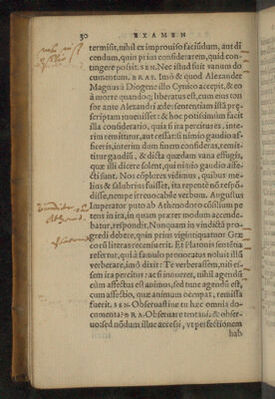 30 EXAMEN
termisit, nihil ex improviso faciēdum, aut di
cendum, quin prius consideraremus, quid con
tingere possit. SEN. Nec istud fuit vanum do
cumentum. BRA. Imò & quod Alexander
Magnus à Diogene illo Cynico accepit, & eo
à morte quandoq; liberatus est, cum eius con
for ante Alexandri ædes sententiam istā præ
scriptam
facili consideratio, quia si ira percitures, inte
rim remittitur, aut est
rit, interim dum finem consideras, remit-
titur gaudiū, & dicta quædam vana effugis,
quæ illi dicere solent, qui nimio gaudio affe-
cti sunt. Nos cōplures vidimus, quibus me-
lius & salubrius fuisset, ita repentè nō respō-
disse, nempe irrevocabile verbum. Augustus
Imperator puto ab Athenodoro cōsilium pe
tens in ira, in quam præter modum accende-
batur, respondit, Nunquam in vindictā pro-
gredi debere, quin prius vigintiquatuor Græ
corū literas recensuerit. Et Platonis sententia
refertur, qui à famulo prouocatus noluit illū
verberare, imò dixit: Te verberassem, nisi es-
sem ira percitus: ac si innueret, nihil agendū
cum affectus est animus, sed tunc agendū est,
cum affectio, quæ animam occupat, remissa
fuerit. SEN. Observastine tu hæc omnia do-
cumenta? BRA. Observare tentaui, & obser-
uo, sed nōdum illuc accessi, ut perfectionem
hab